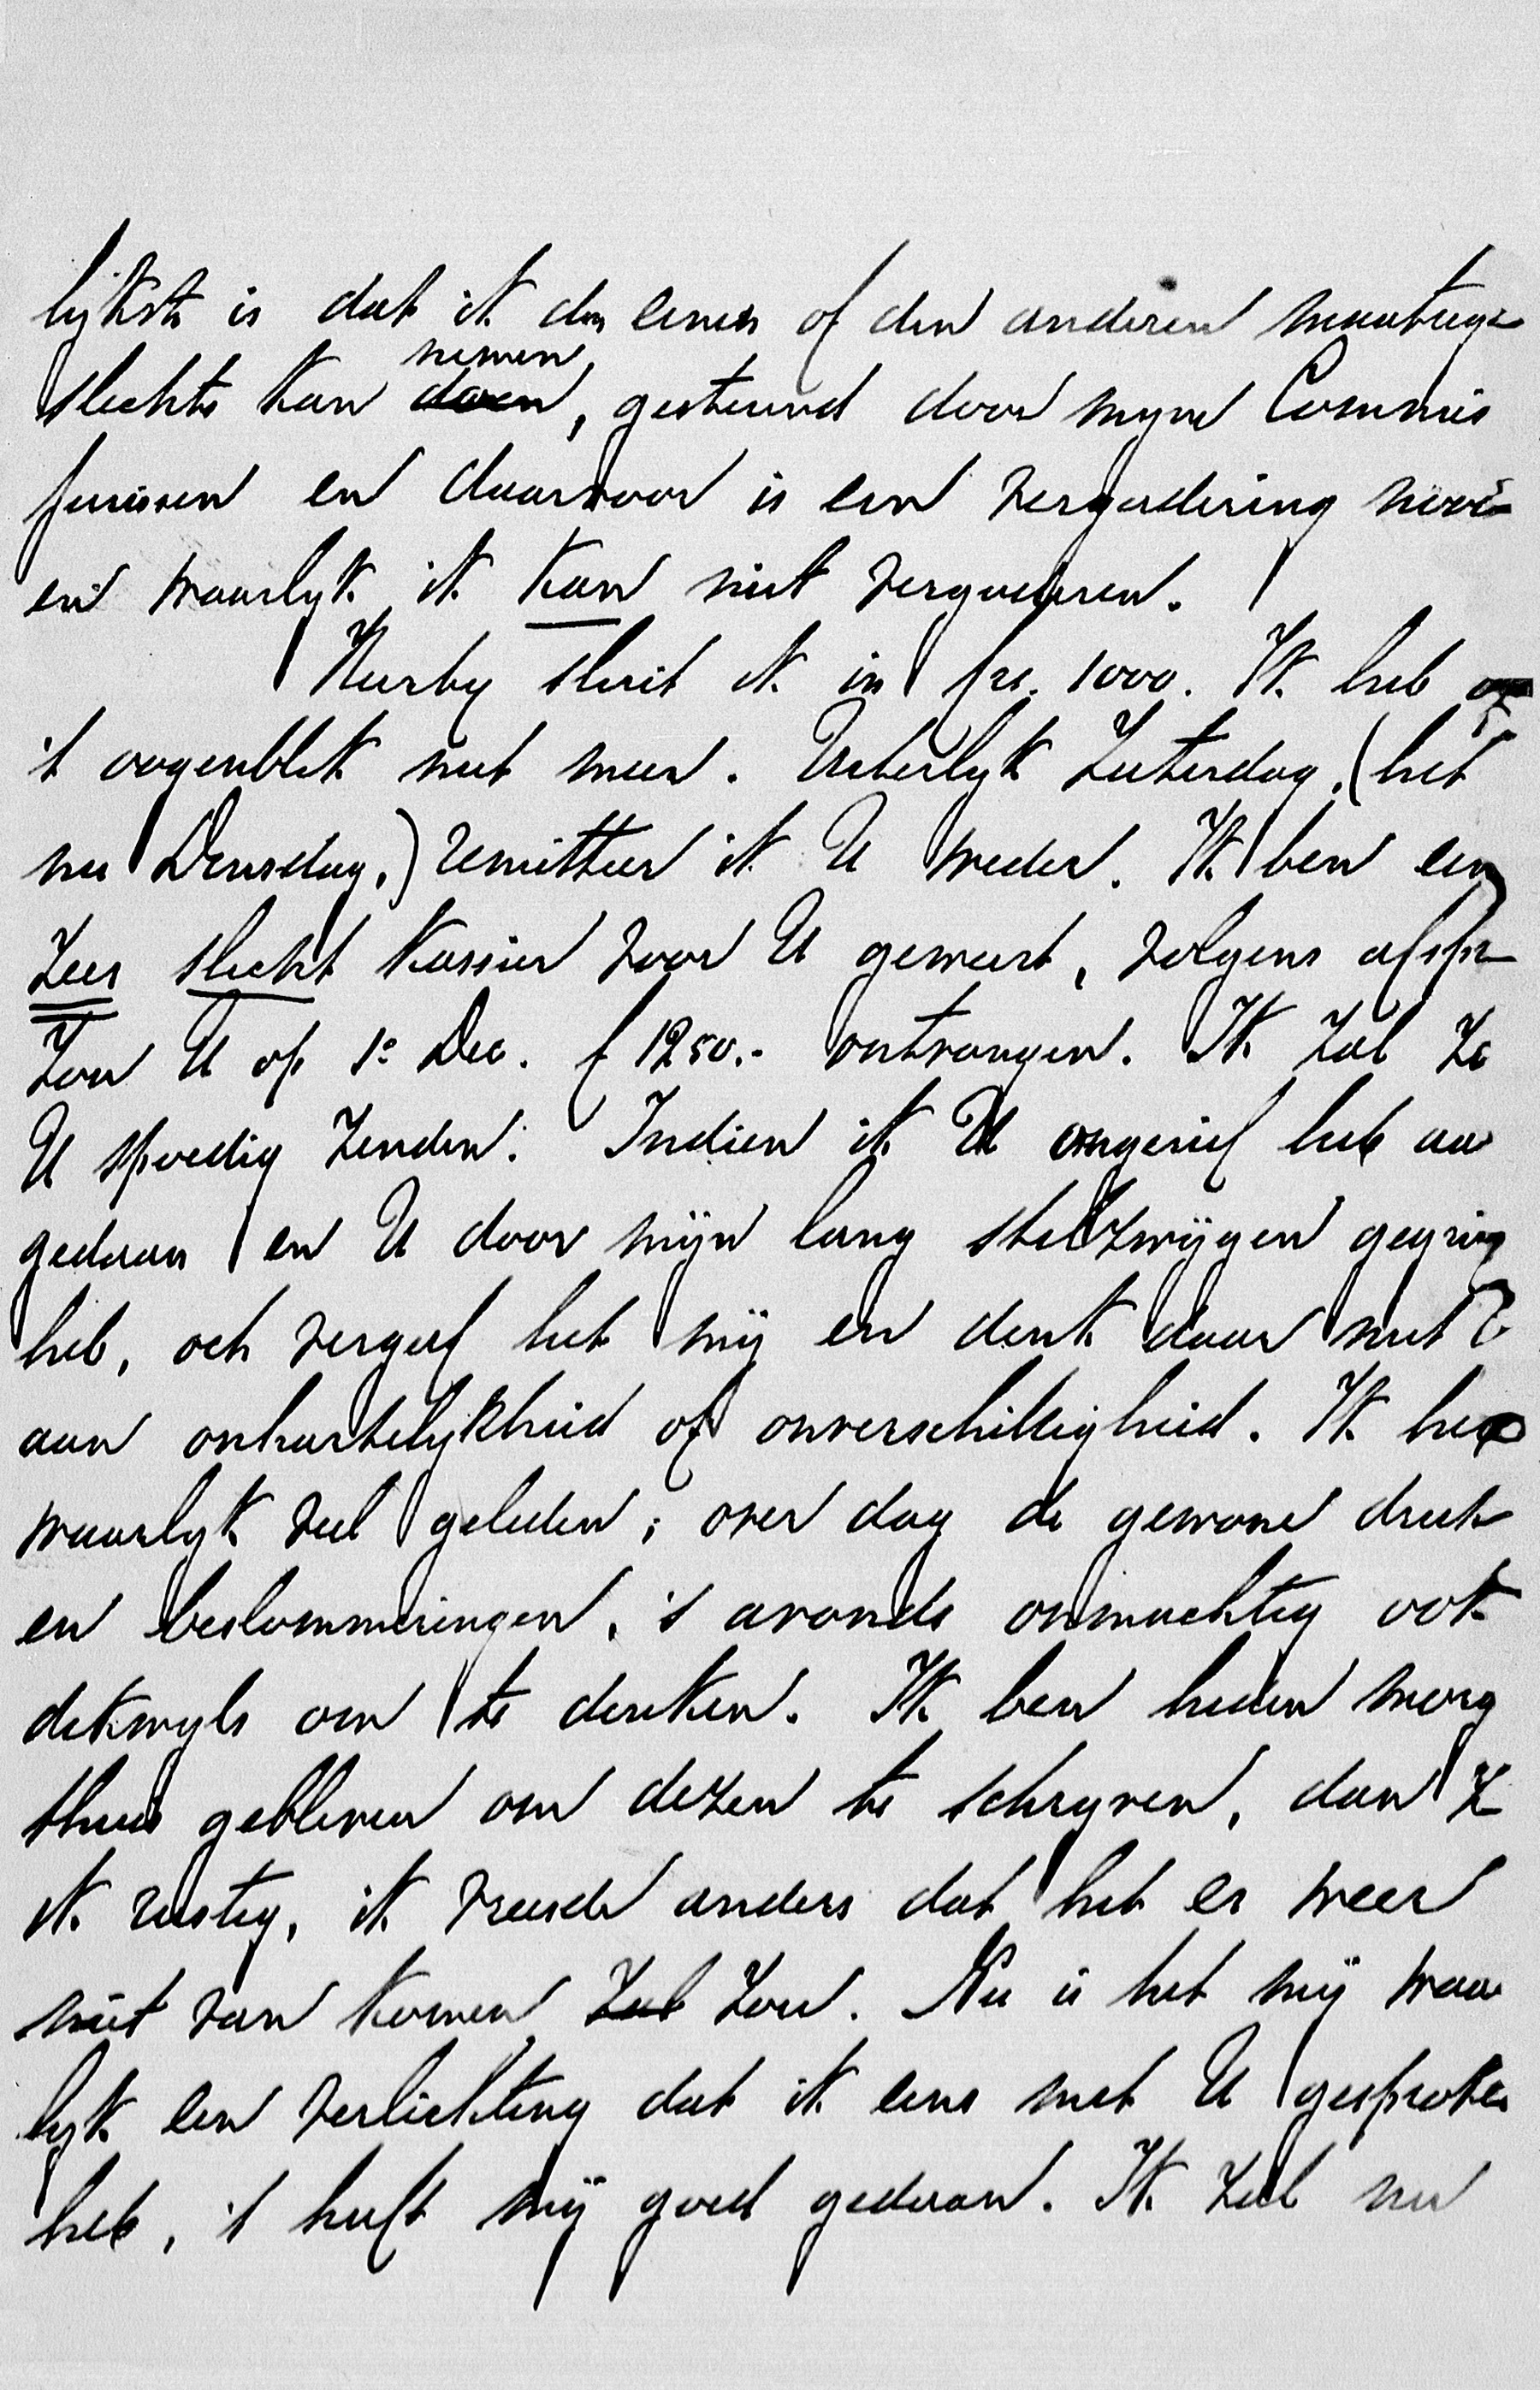 lijkste is dat ik den eenen of den anderen maatreg
slechts kan doen nemen, gesteund door mijne Commis
sarissen en daarvoor is een vergadering noo
en waarlyk ik kan niet vergaderen.
Hierby sluit ik in frs. 1000. Ik heb op
't oogenblik niet meer. Uiterlyk Zaterdag, (het
nu Dinsdag,) remitteer ik U weder. Ik ben een
zeer slecht Kassier voor U geweest, volgens afspr
zou U op 1o Dec. f 1250.- ontvangen. Ik zal ze
U spoedig zenden. Indien ik U ongerief heb aan
gedaan en U door mijn lang stilzwijgen gegrie
heb, och vergeef het mij en denk daar niet
aan onhartelykheid of onverschilligheid. Ik heb
waarlyk veel geleden; over dag de gewone drukte
en beslommeringen, 's avonds onmachtig ook
dikwyls om te denken. Ik ben heden morg
thuis gebleven om dezen te schryven, dan z
ik rustig, ik vreesde anders dat het er weer
niet van komen zal zou. Nu is het mij waar
lyk een verlichting dat ik eens met U gesproken
heb, 't heeft mij goed gedaan. Ik zal nu